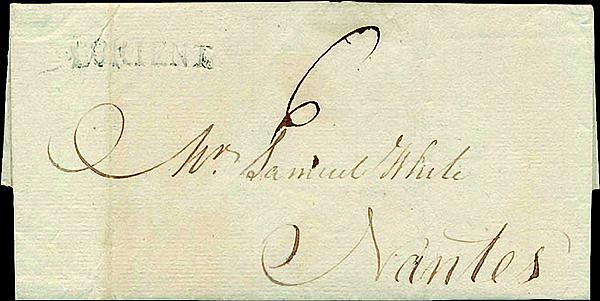 L'ORIENT
6
Mr. Samuel White
Nantes